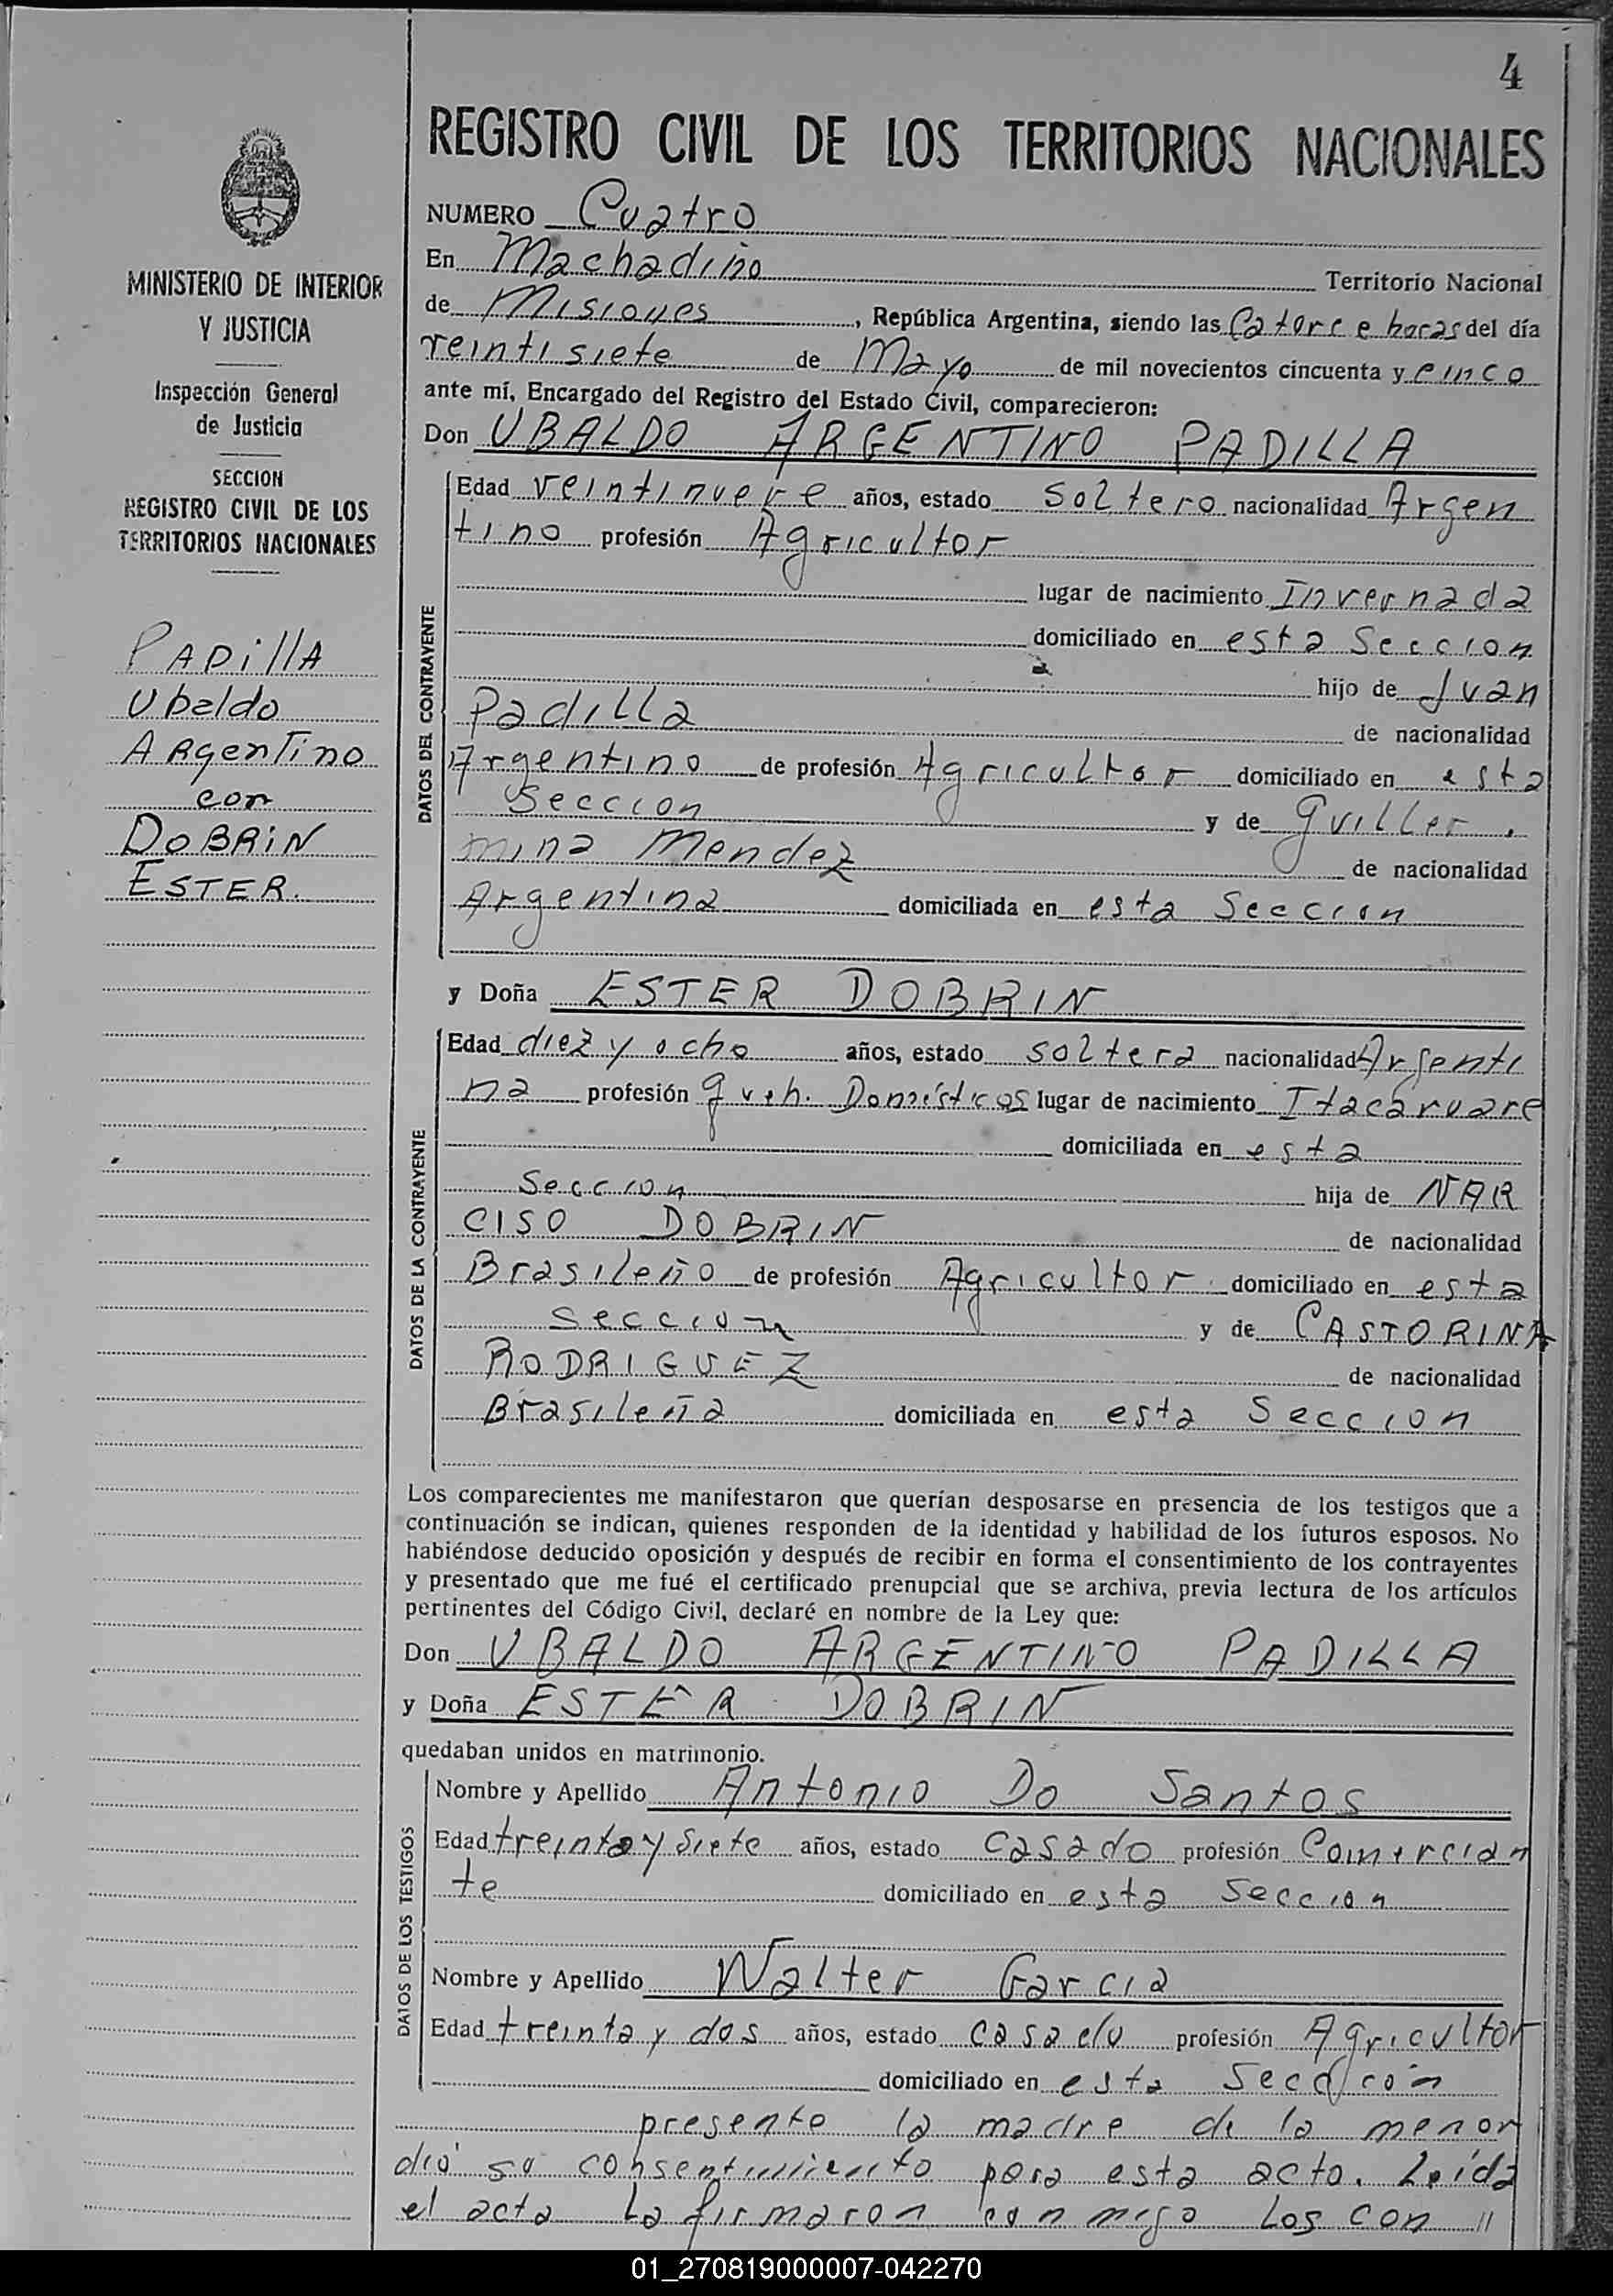 4
REGISTRO CIVIL DE LOS TERRITORIOS NACIONALES
MINISTERIO DE INTERIOR
Y JUSTICIA
Inspección General
de Justicia
SECCION
REGISTRO CIVIL DE LOS
TERRITORIOS NACIONALES
PADillA
Ubaldo
ARgenTino
con
DOBRiN
ESTER.
NUMERO Cuatro
En Machadiño Territorio Nacional
de Misiones, República Argentina, siendo las Catorce horas del día
veintisiete de Mayo de mil novecientos cincuenta y cinco
ante mí, Encargado del Registro del Estado Civil, comparecieron:
Don UBALDO ARGENTINO PADILLA
DATOS DEL CONTRAYENTE
Edad veintinueve años, estado soltero nacionalidad Argen
tino profesión Agricultor
lugar de nacimiento Invernada
domiciliado en esta Seccion
hijo de Juan
Padilla de nacionalidad
Argentino de profesión Agricultor domiciliado en esta
Seccion y de Guiller.
mina Mendez de nacionalidad
Argentina domiciliada en esta Seccion
y Doña ESTER DOBRIN
DATOS DE LA CONTRAYENTE
Edad diez y ocho años, estado soltera nacionalidad Argenti
na profesión queh. Domésticos lugar de nacimiento Itacaruare
domiciliada en esta
Seccion hija de NAR
CISO DOBRIN de nacionalidad
Brasileño de profesión Agricultor domiciliado en esta
Seccion y de CASTORINA
RODRIGUEZ de nacionalidad
Brasileña domiciliada en esta Seccion
Los comparecientes me manifestaron que querían desposarse en presencia de los testigos que a
continuación se indican, quienes responden de la identidad y habilidad de los futuros esposos. No
habiéndose deducido oposición y después de recibir en forma el consentimiento de los contrayentes
y presentado que me fué el certificado prenupcial que se archiva, previa lectura de los artículos
pertinentes del Código Civil, declaré en nombre de la Ley que:
Don UBALDO ARGENTINO PADILLA
y Doña ESTER DOBRIN
quedaban unidos en matrimonio.
DATOS DE LOS TESTIGOS
Nombre y Apellido Antonio Do Santos
Edad treinta y siete años, estado Casado profesión Comercian
te domiciliado en esta Seccion
Nombre y Apellido Walter Garcia
Edad treinta y dos años, estado Casado profesión Agricultor
domiciliado en esta Seccion
presente la madre de la menor
dió su consentimiento para esta acto. Leída
el acta la firmaron conmigo los con //
01_270819000007-042270